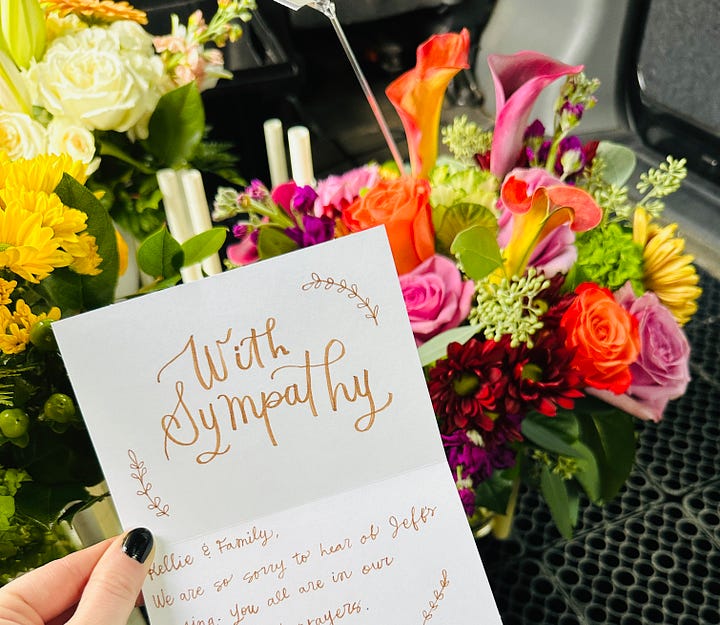 With
Sympathy
Kellie & Family,
We are so sorry to hear of Jeffs
You all are in our
prayers.